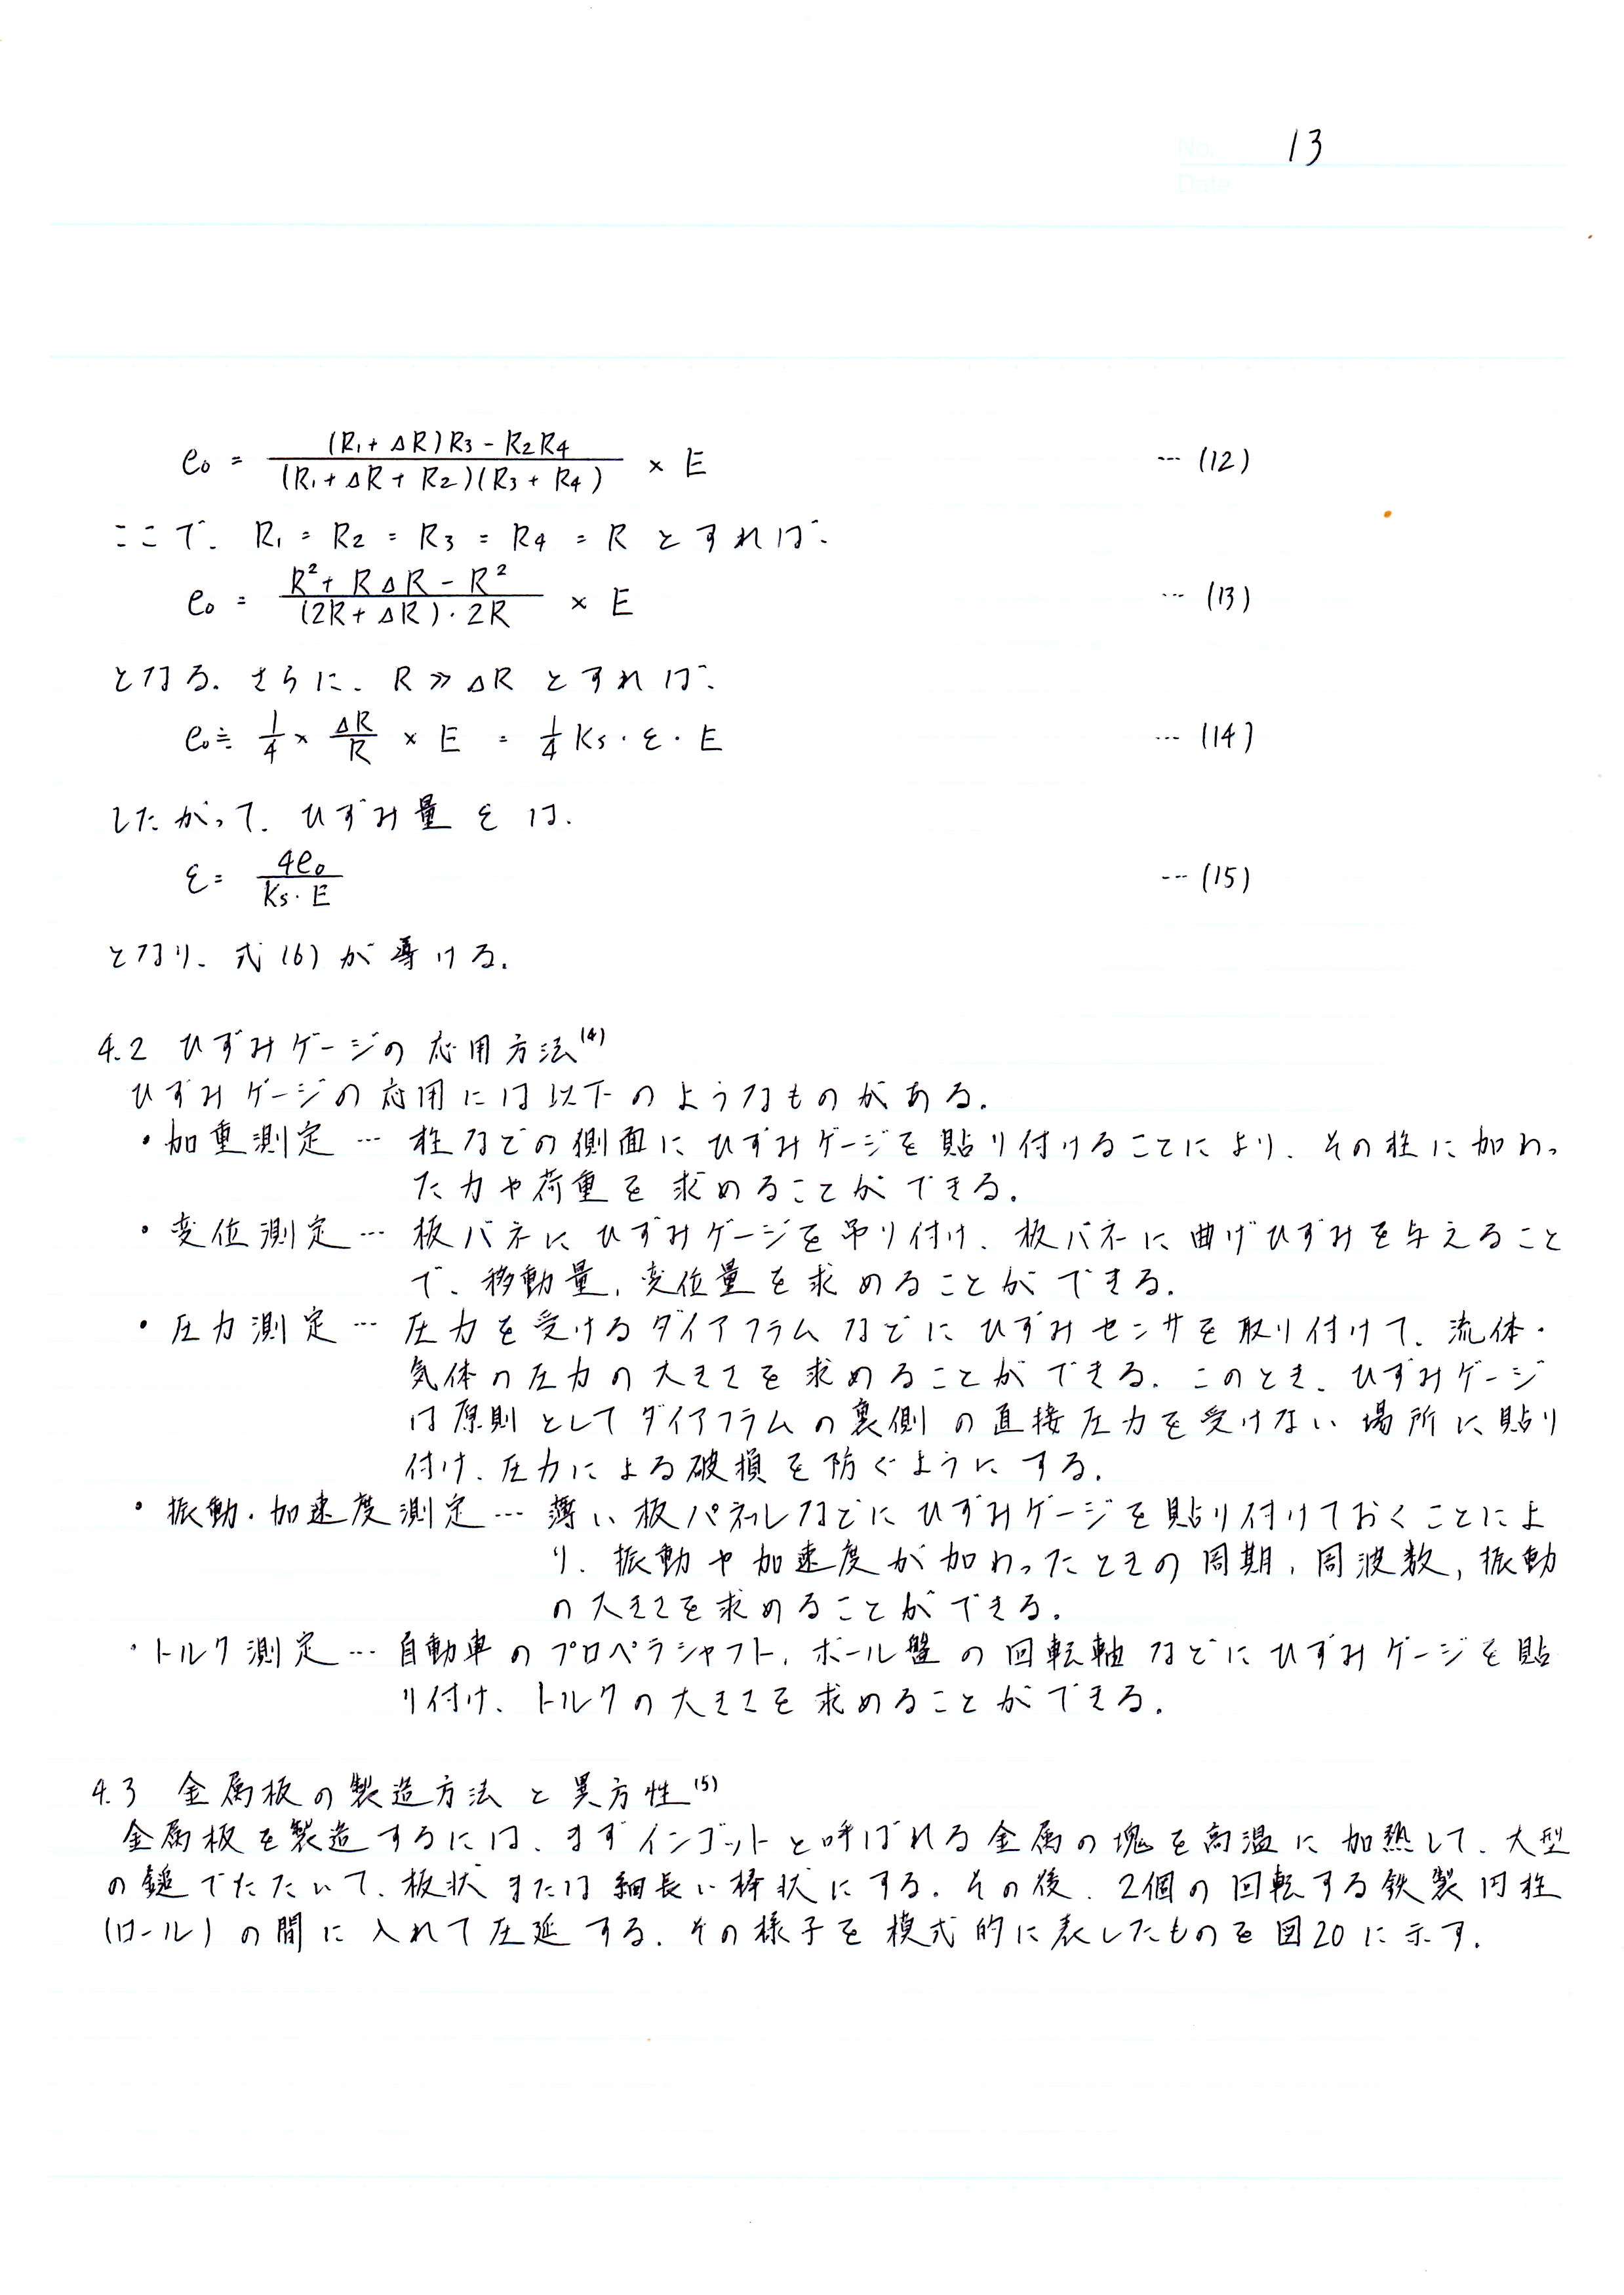 No. 13
Date
e₀ = ((R₁ + ΔR)R₃ - R₂R₄) / ((R₁ + ΔR + R₂)(R₃ + R₄)) × E … (12)
ここで、R₁ = R₂ = R₃ = R₄ = R とすれば、
e₀ = (R² + RΔR - R²) / ((2R + ΔR)・2R) × E … (13)
となる。さらに、R ≫ ΔR とすれば、
e₀ ≒ 1/4 × ΔR/R × E = 1/4 Ks・ε・E … (14)
したがって、ひずみ量 ε は、
ε = 4e₀ / (Ks・E) … (15)
となり、式(6)が導ける。
4.2 ひずみゲージの応用方法⁽⁴⁾
ひずみゲージの応用には以下のようなものがある。
・加重測定 … 柱などの側面にひずみゲージを貼り付けることにより、その柱に加わっ
た力や荷重を求めることができる。
・変位測定 … 板バネにひずみゲージを吊り付け、板バネに曲げひずみを与えること
で、移動量,変位量を求めることができる。
・圧力測定 … 圧力を受けるダイアフラムなどにひずみセンサを取り付けて、流体・
気体の圧力の大きさを求めることができる。このとき、ひずみゲージ
は原則としてダイアフラムの裏側の直接圧力を受けない場所に貼り
付け、圧力による破損を防ぐようにする。
・振動・加速度測定 … 薄い板パネルなどにひずみゲージを貼り付けておくことによ
り、振動や加速度が加わったときの周期,周波数,振動
の大きさを求めることができる。
・トルク測定 … 自動車のプロペラシャフト,ボール盤の回転軸などにひずみゲージを貼
り付け、トルクの大きさを求めることができる。
4.3 金属板の製造方法と異方性⁽⁵⁾
金属板を製造するには、まずインゴットと呼ばれる金属の塊を高温に加熱して、大型
の鎚でたたいて、板状または細長い棒状にする。その後、2個の回転する鉄製円柱
(ロール)の間に入れて圧延する。その様子を模式的に表したものを図20に示す。